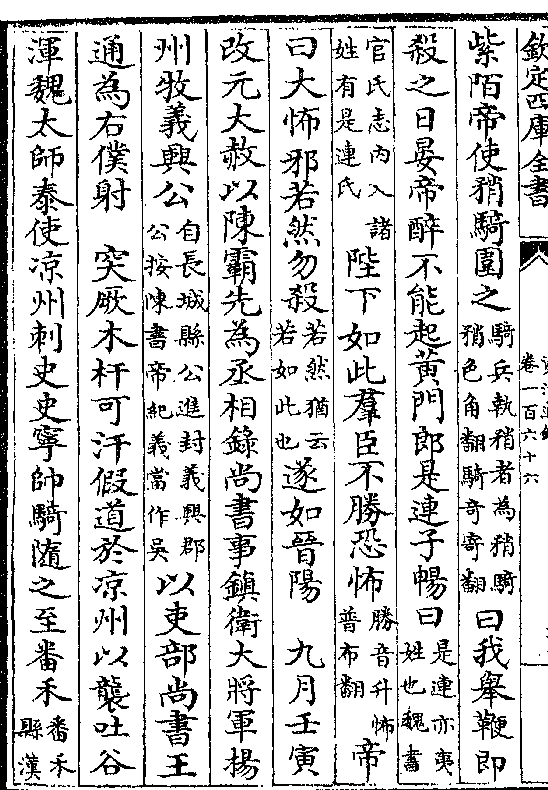 欽定四庫全書
卷一百六十六
紫陌帝使矟騎圍之騎兵執矟者為矟騎矟色角翻騎奇寄翻曰我舉鞭即
殺之日晏帝醉不能起黄門郎是連子暢曰是連亦夷姓也魏書
官氏志内入諸姓有是連氏陛下如此羣臣不勝恐怖勝音升怖普布翻帝
曰大怖邪若然勿殺若然猶云若如此也遂如晉陽 九月壬寅
改元大赦以陳霸先為丞相錄尚書事鎮衛大將軍揚
州牧義興公自長城縣公進封義興郡公按陳書帝紀義當作吳以吏部尚書王
通為右僕射 突厥木杆可汗假道於凉州以襲吐谷
渾魏太師泰使凉州刺史史寧帥騎隨之至番禾番禾縣漢